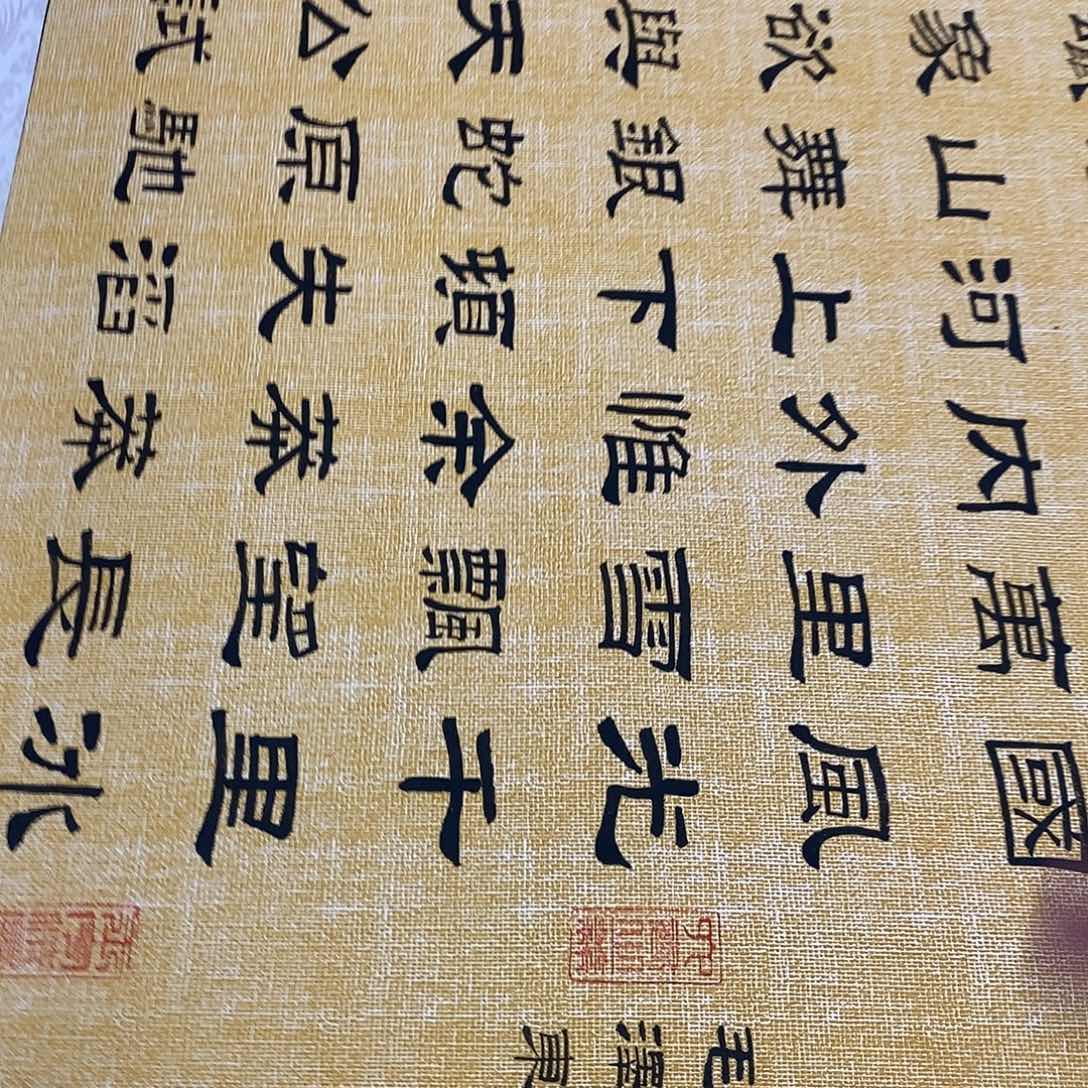 毛澤東
國風光千里冰
萬里雪飄望長
内外惟余莽莽
河上下頓失滔
山舞銀蛇原馳
象欲與天公試